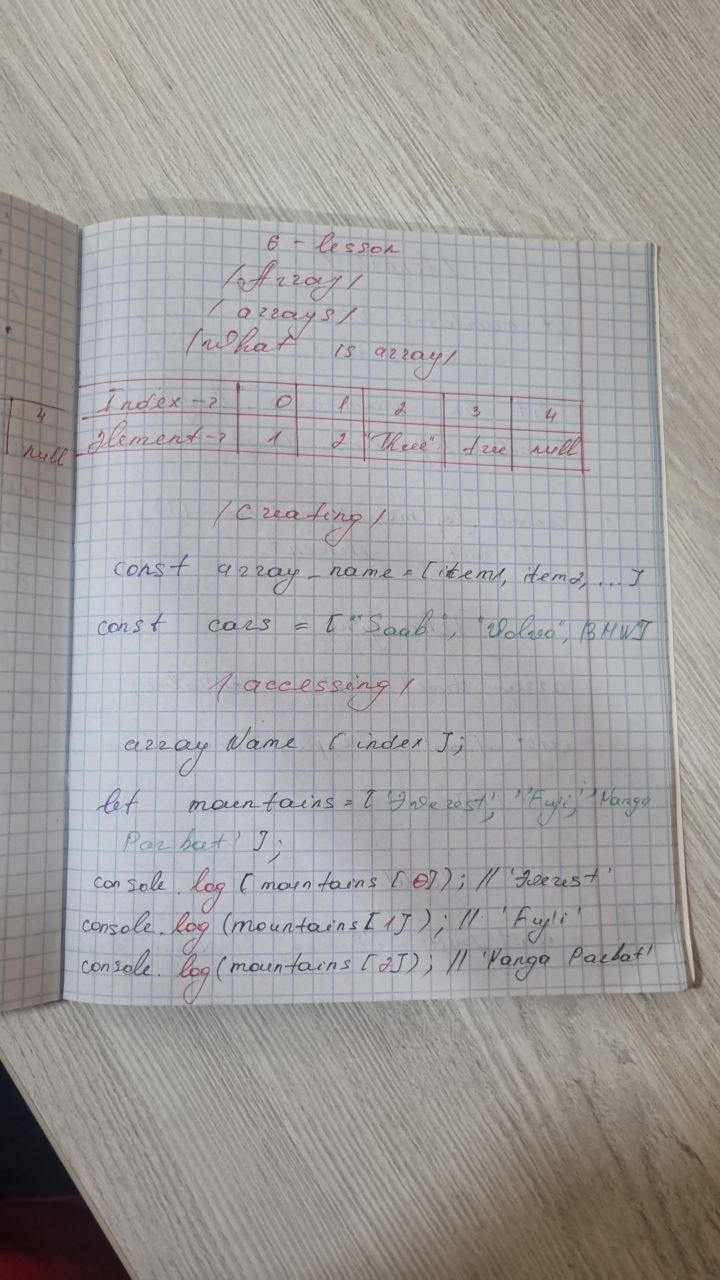 6 - lesson
/Array/
/arrays/
/What is array/
Index → 0 1 2 3 4
Element → 1 2 "Three" true null
4
null
/Creating/
const array_name = [item1, item2, ...]
const cars = ["Saab", "Volvo", BMW]
/accessing/
arrayName [index];
let mountains = ['Everest', 'Fuji', 'Nanga
Parbat'];
console.log(mountains[0]); // 'Everest'
console.log(mountains[1]); // 'Fuji'
console.log(mountains[2]); // 'Nanga Parbat'